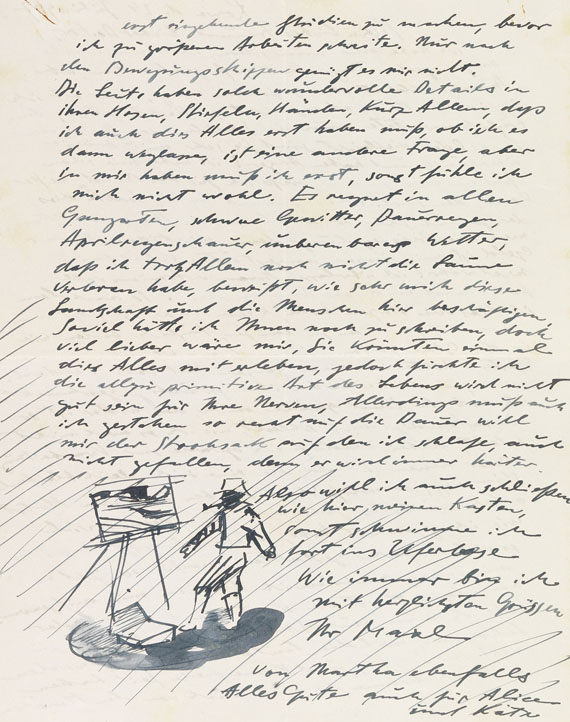 erst eingehende Studien zu machen, bevor
ich zu großeren Arbeiten schreite. Nur nach
den Bewegungsskizzen genügt es mir nicht.
Die Leute haben solch wundervolle Details in
ihren Hosen, Stiefeln, Händen, kurz Allem, daß
ich auch dies Alles erst haben muß, ob ich es
dann weglasse, ist eine andere Frage, aber
in mir haben muß ich erst, sonst fühle ich
mich nicht wohl. Es regnet in allen
Gangarten, schwere Gewitter, Dauerregen,
Aprilregenschauer, unberenbares Wetter,
daß ich trotz Allem noch nicht die Laune
verloren habe, beweißt, wie sehr mich diese
Landschaft und die Menschen hier beschäftigen
Soviel hätte ich Ihnen noch zu schreiben, doch
viel lieber wäre mir, Sie könnten einmal
dies Alles mit erleben, jedoch fürchte ich
die primitive Art des Lebens wird nicht
gut sein für Ihre Nerven, Allerdings muß auch
ich gestehen so recht auf die Dauer will
mir der Strohsack auf den ich schlafe, auch
nicht gefallen, denn er wird immer härter.
Also will ich auch schließen
wie hier meinen Kasten,
sonst schwimme ich
fort ins Uferlose
Wie immer bin ich
mit herzlichsten Grüssen
Ihr
von Martha ebenfalls
Alles Gute auch für Alice
und Käte